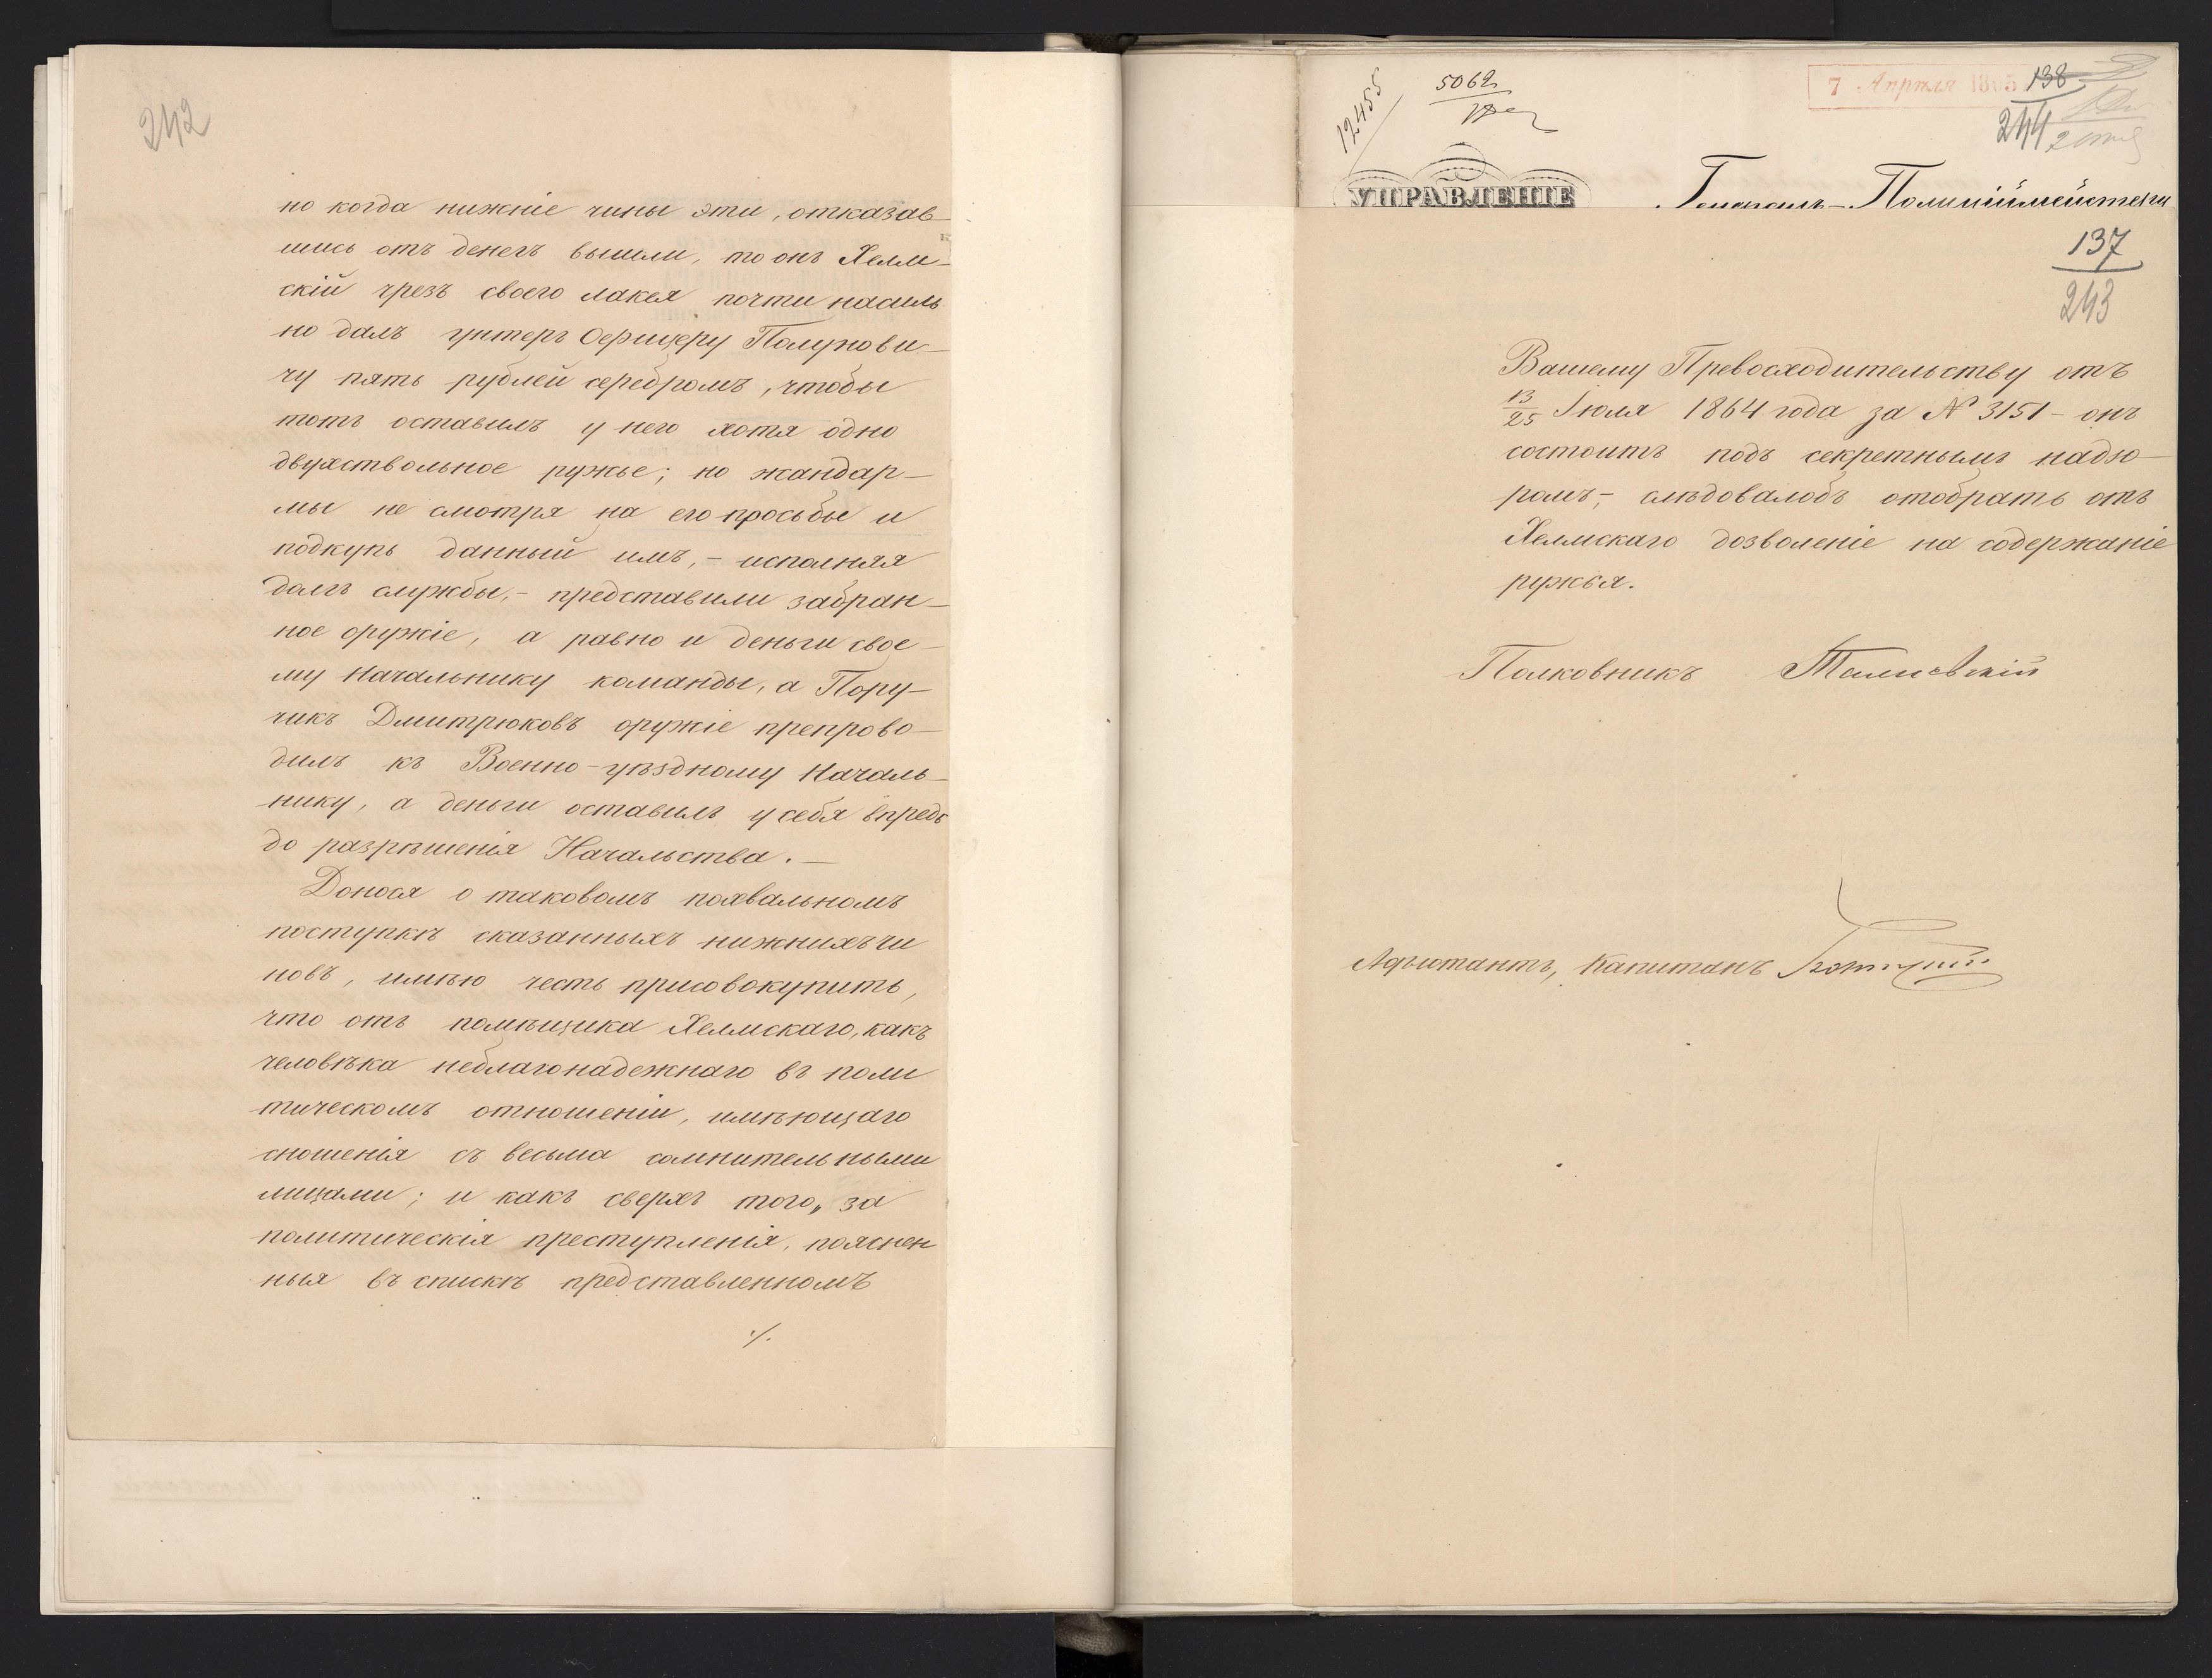 242
но когда нижніе чины эти, отказав-
шись отъ денегъ вышли, то онъ Хелм-
скій чрезъ своего лакея почти насиль
но далъ унтеръ Офицеру Полунови-
чу пять рублей серебромъ, чтобы
тотъ оставилъ у него хотя одно
двухствольное ружье; но жандар-
мы не смотря на его просьбы и
подкупъ данный имъ, - исполняя
долгъ службы, - представили забран-
ное оружіе, а равно и деньги свое-
му Начальнику команды, а Пору-
чикъ Дмитрюковъ оружіе препрово-
дилъ къ Военно-уѣздному Началь-
нику, а деньги оставилъ у себя впредь
до разрѣшенія Начальства. —
Донося о таковомъ похвальномъ
поступкѣ сказанныхъ нижнихъ чи
новъ, имѣю честь присовокупить,
что отъ помѣщика Хелмскаго, какъ
человѣка неблагонадежнаго въ поли
тическомъ отношеніи, имѣющаго
сношенія съ весьма сомнительными
лицами; и какъ сверхъ того, за
политическія преступленія, пояснен
ныя въ спискѣ представленномъ
./.
12455
5062
7 Апрѣля 1865
138
244
УПРАВЛЕНІЕ
Генералъ-Полиційmейстера
137
243
Вашему Превосходительству отъ
13/25 Іюля 1864 года за № 3151 - онъ
состоитъ подъ секретнымъ надзо-
ромъ, - слѣдовалобъ отобрать отъ
Хелмскаго дозволеніе на содержаніе
ружья.
Полковникъ
Адъютантъ, Капитанъ